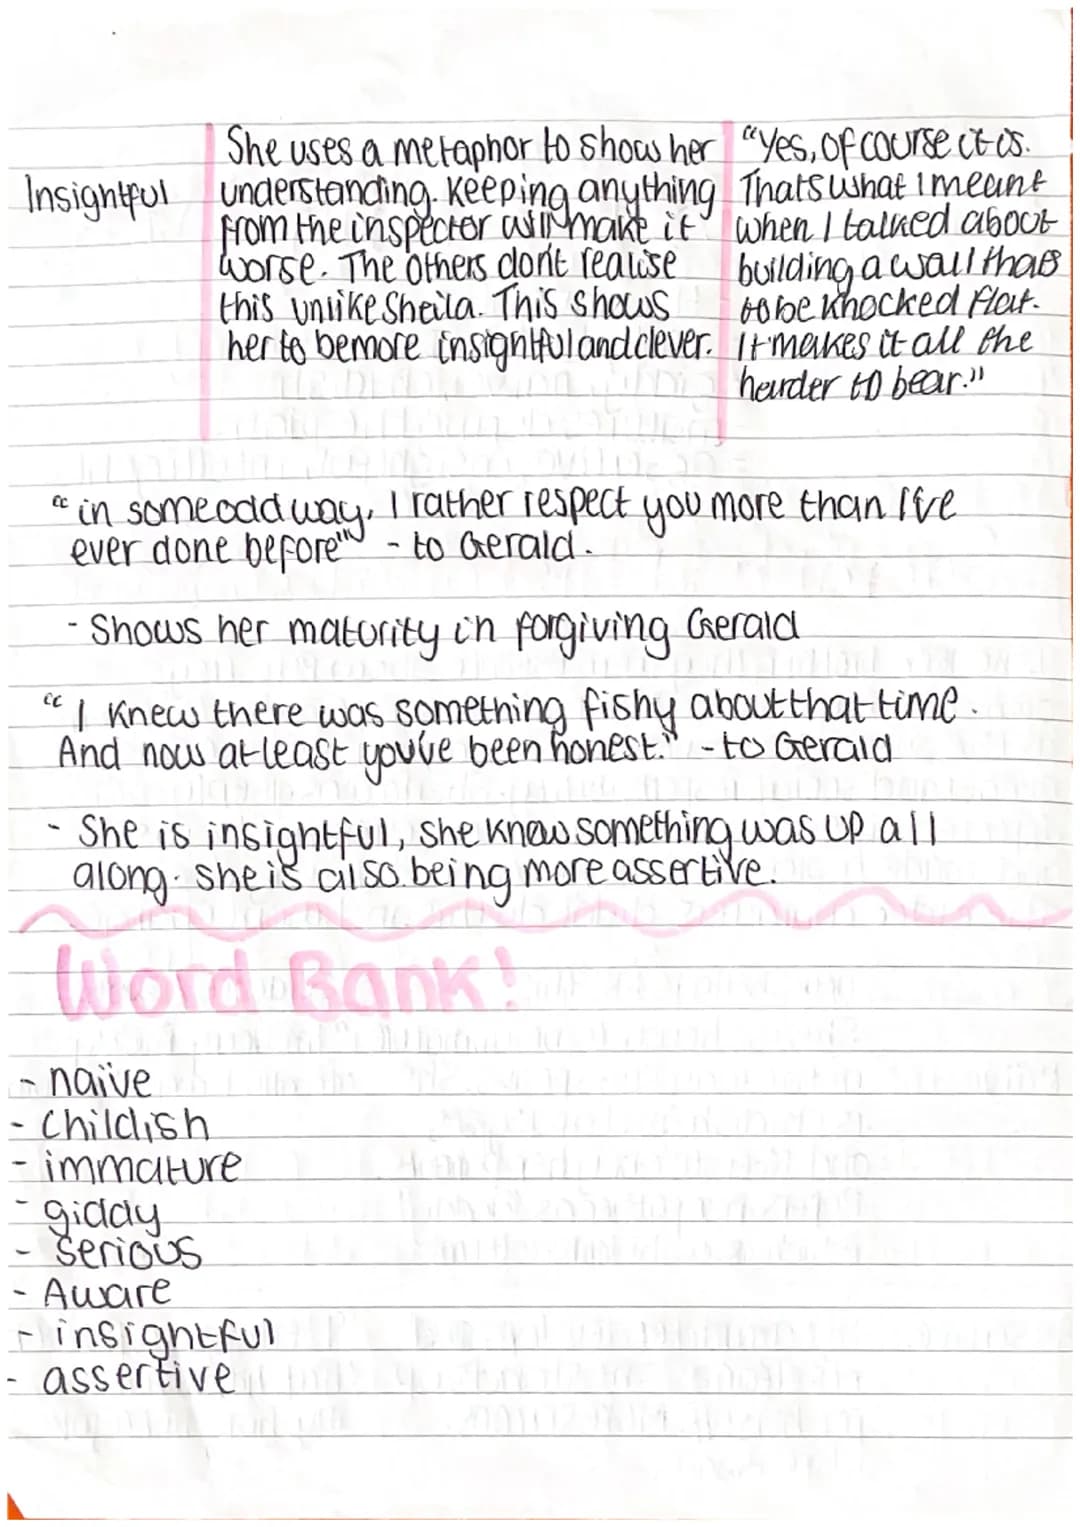 Insightful
She uses a metaphor to show her
understanding. Keeping anything
from the inspector will make it
worse. The others dont realise
this unlike Sheila. This shows
her to be more insightful and clever.
"Yes, of course it is.
Thats what I meant
when I talked about
building a wall thats
to be knocked flat.
It makes it all the
harder to bear."
"in some odd way, I rather respect you more than I've
ever done before" - to Gerald.
- Shows her maturity in forgiving Gerald
"I knew there was something fishy about that time.
And now at least you've been honest." - to Gerald
- She is insightful, she knew something was up all
along. she is also being more assertive.
Word Bank!
- naïve
- Childish
- immature
- giddy
- serious
- Aware
- insightful
- assertive